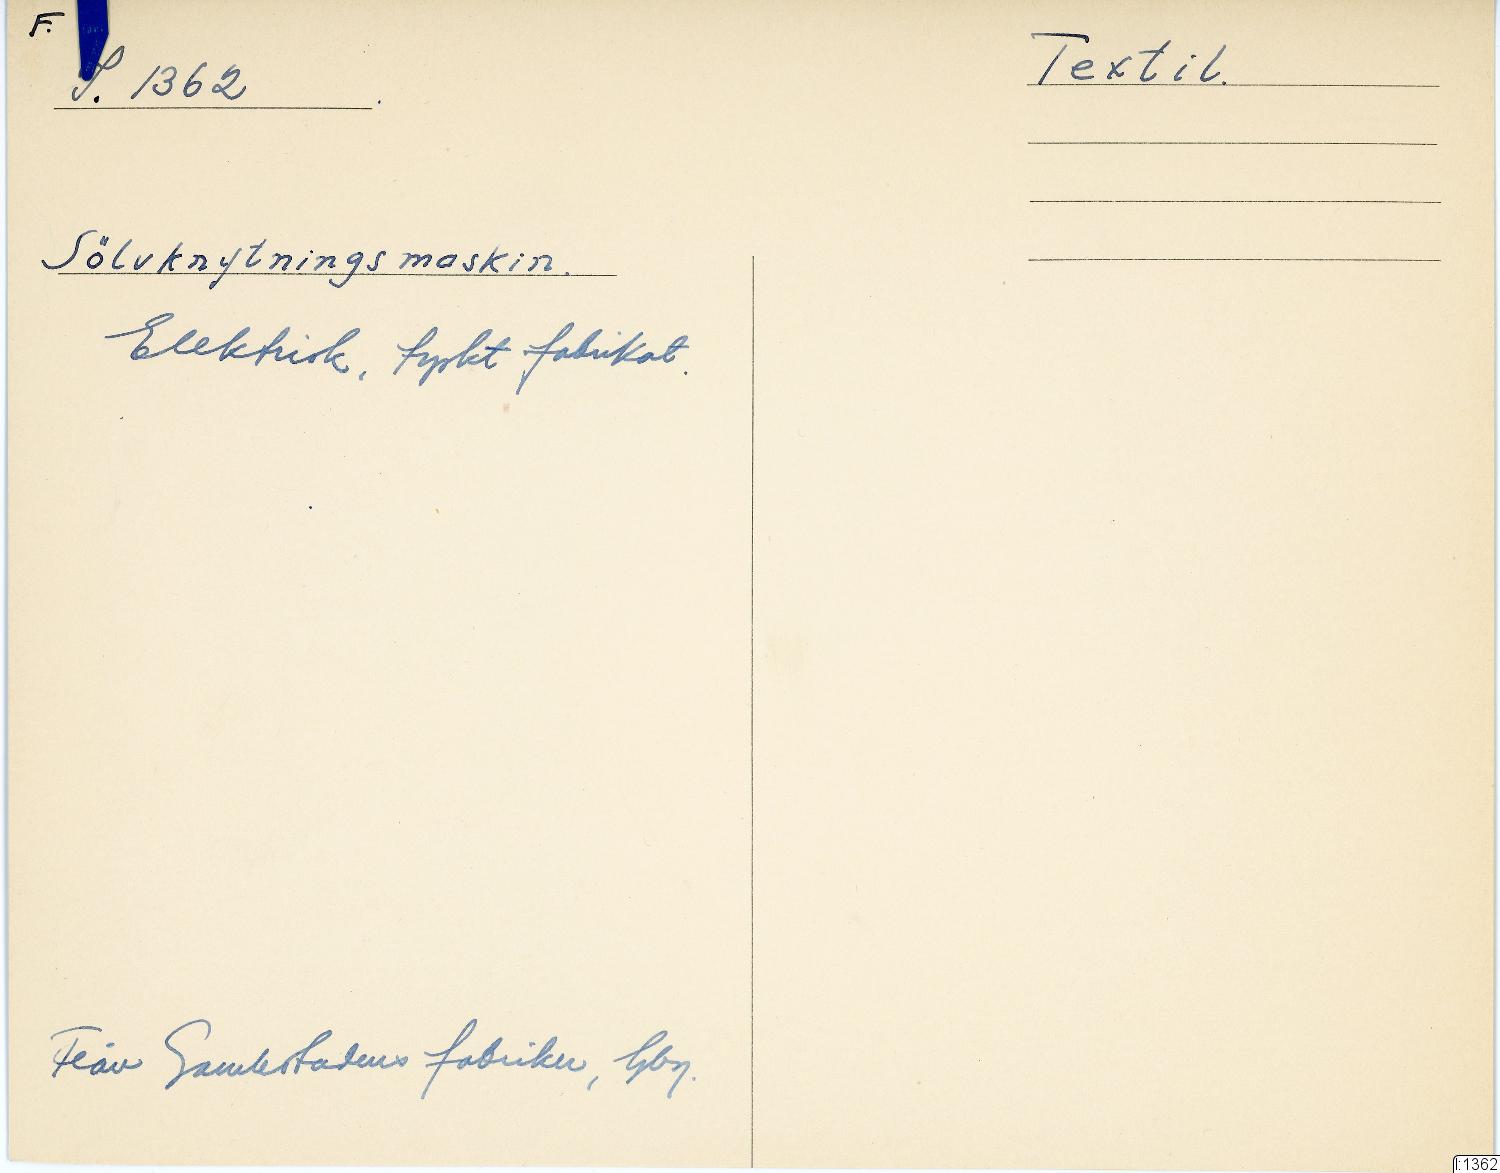 F.
S. 1362
Textil.
Sölvknytningsmaskin.
Elektrisk, tyskt fabrikat.
Från Gamlestadens fabriker, Gbg.
I:1362